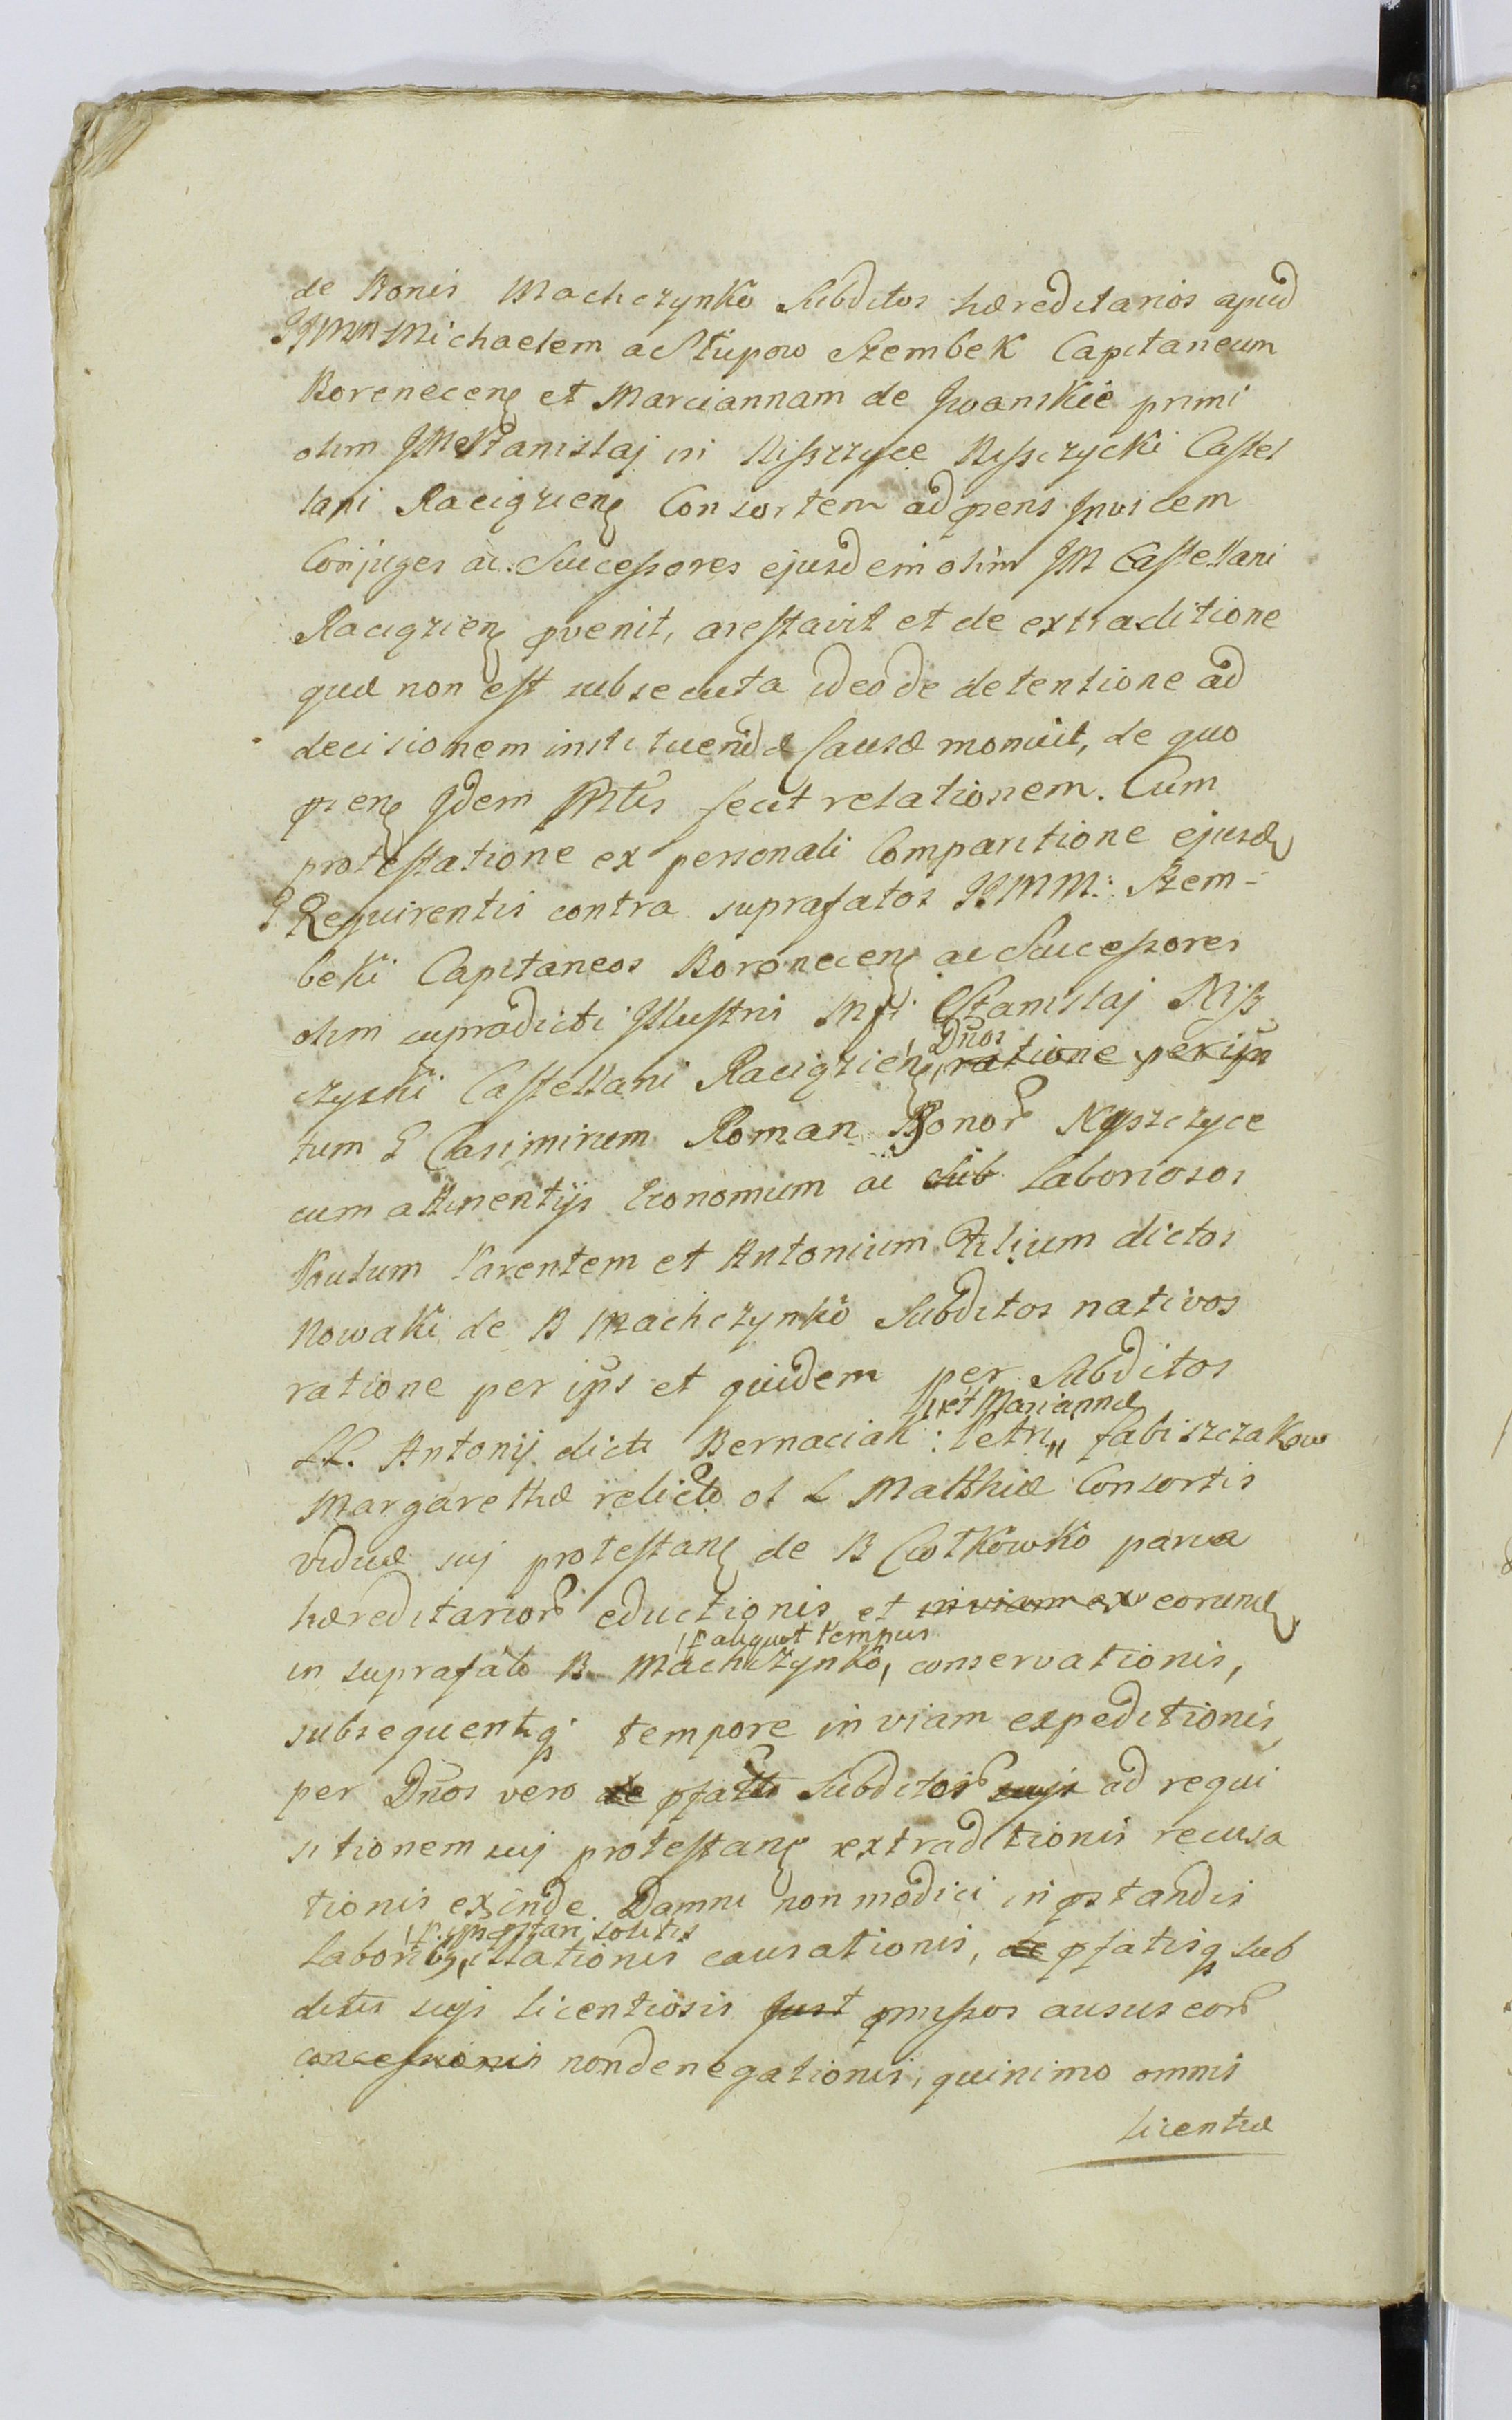 de Bonis Machczynko Subditos hæreditarios apud
JJMM Michaelem a Słupow Szembek Capitaneum
Borenecen et Mariannam de Jwanskie primi
olim JM Stanislaj in Niszczyce Niszczycki Castel
lani Raciązien Consortem ad præns Invicem
Conjuges ac Successores ejusdem olim JM Castellani
Raciązien pvenit, arestavit et de extraditione
quæ non est subsecuta ideo de detentione ad
decisionem instituendæ Causæ monuit, de quo
præn Jdem Mtis fecit relationem. Cum
protestatione ex personali Comparitione ejusd
G Requirentis contra suprafatos JJMM: Szem-
beki Capitaneos Boronecen ac Successores
olim supradicti Jllustris Mfi Stanislaj Nisz
czycki Castellani Raciązien, ratione per ips
Dños
tum G Casimirum Roman Bonor Nyszczyce
cum attinentijs Economum ac Sub Laboriosos
Paulum Parentem et Antonium Filium dictos
Nowaki de B Machczynko Subditos nativos
ratione per ips et quidem per Subditos
et Mariannæ
LL. Antonij dicti Bernaciak: Petri Fabiszczakow
Margarethæ relictæ ol L Matthiæ Consortis
viduæ suj protestan de B Ciotkowko parva
hæreditarior eductionis et in viam ex eorund
p aliquot tempus
in suprafato B Machczynko, conservationis,
subsequentiq tempore in viam expeditionis,
per Dños vero de pfatis Subditor sujs ad requi
sitionem suj protestan extraditionis recusa
tionis exinde Damni non modici in pstandis
p ips pstari solitis
Laborib, illationis causationis, de pfatisq sub
ditis sujs licentiosis Just pmissos ausus eor
concessionis non denegationis, quinimo omnis
licentiæ